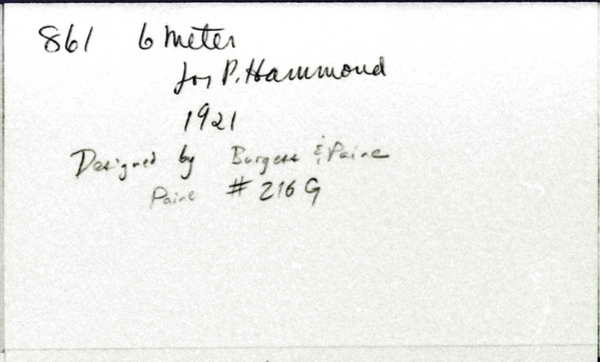 861 6 Meter
for P. Hammond
1921
Designed by Burgess & Paine
Paine # 216 G